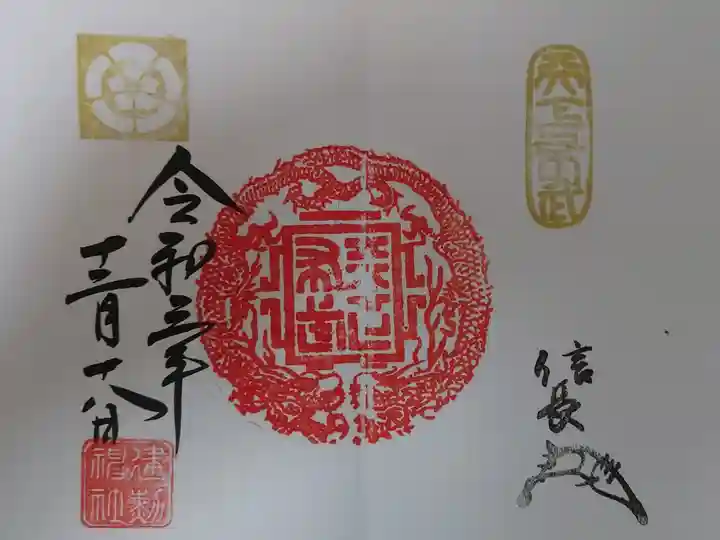 天下布武
信長
天下布武
令和三年
十二月十八日
建勲
神社